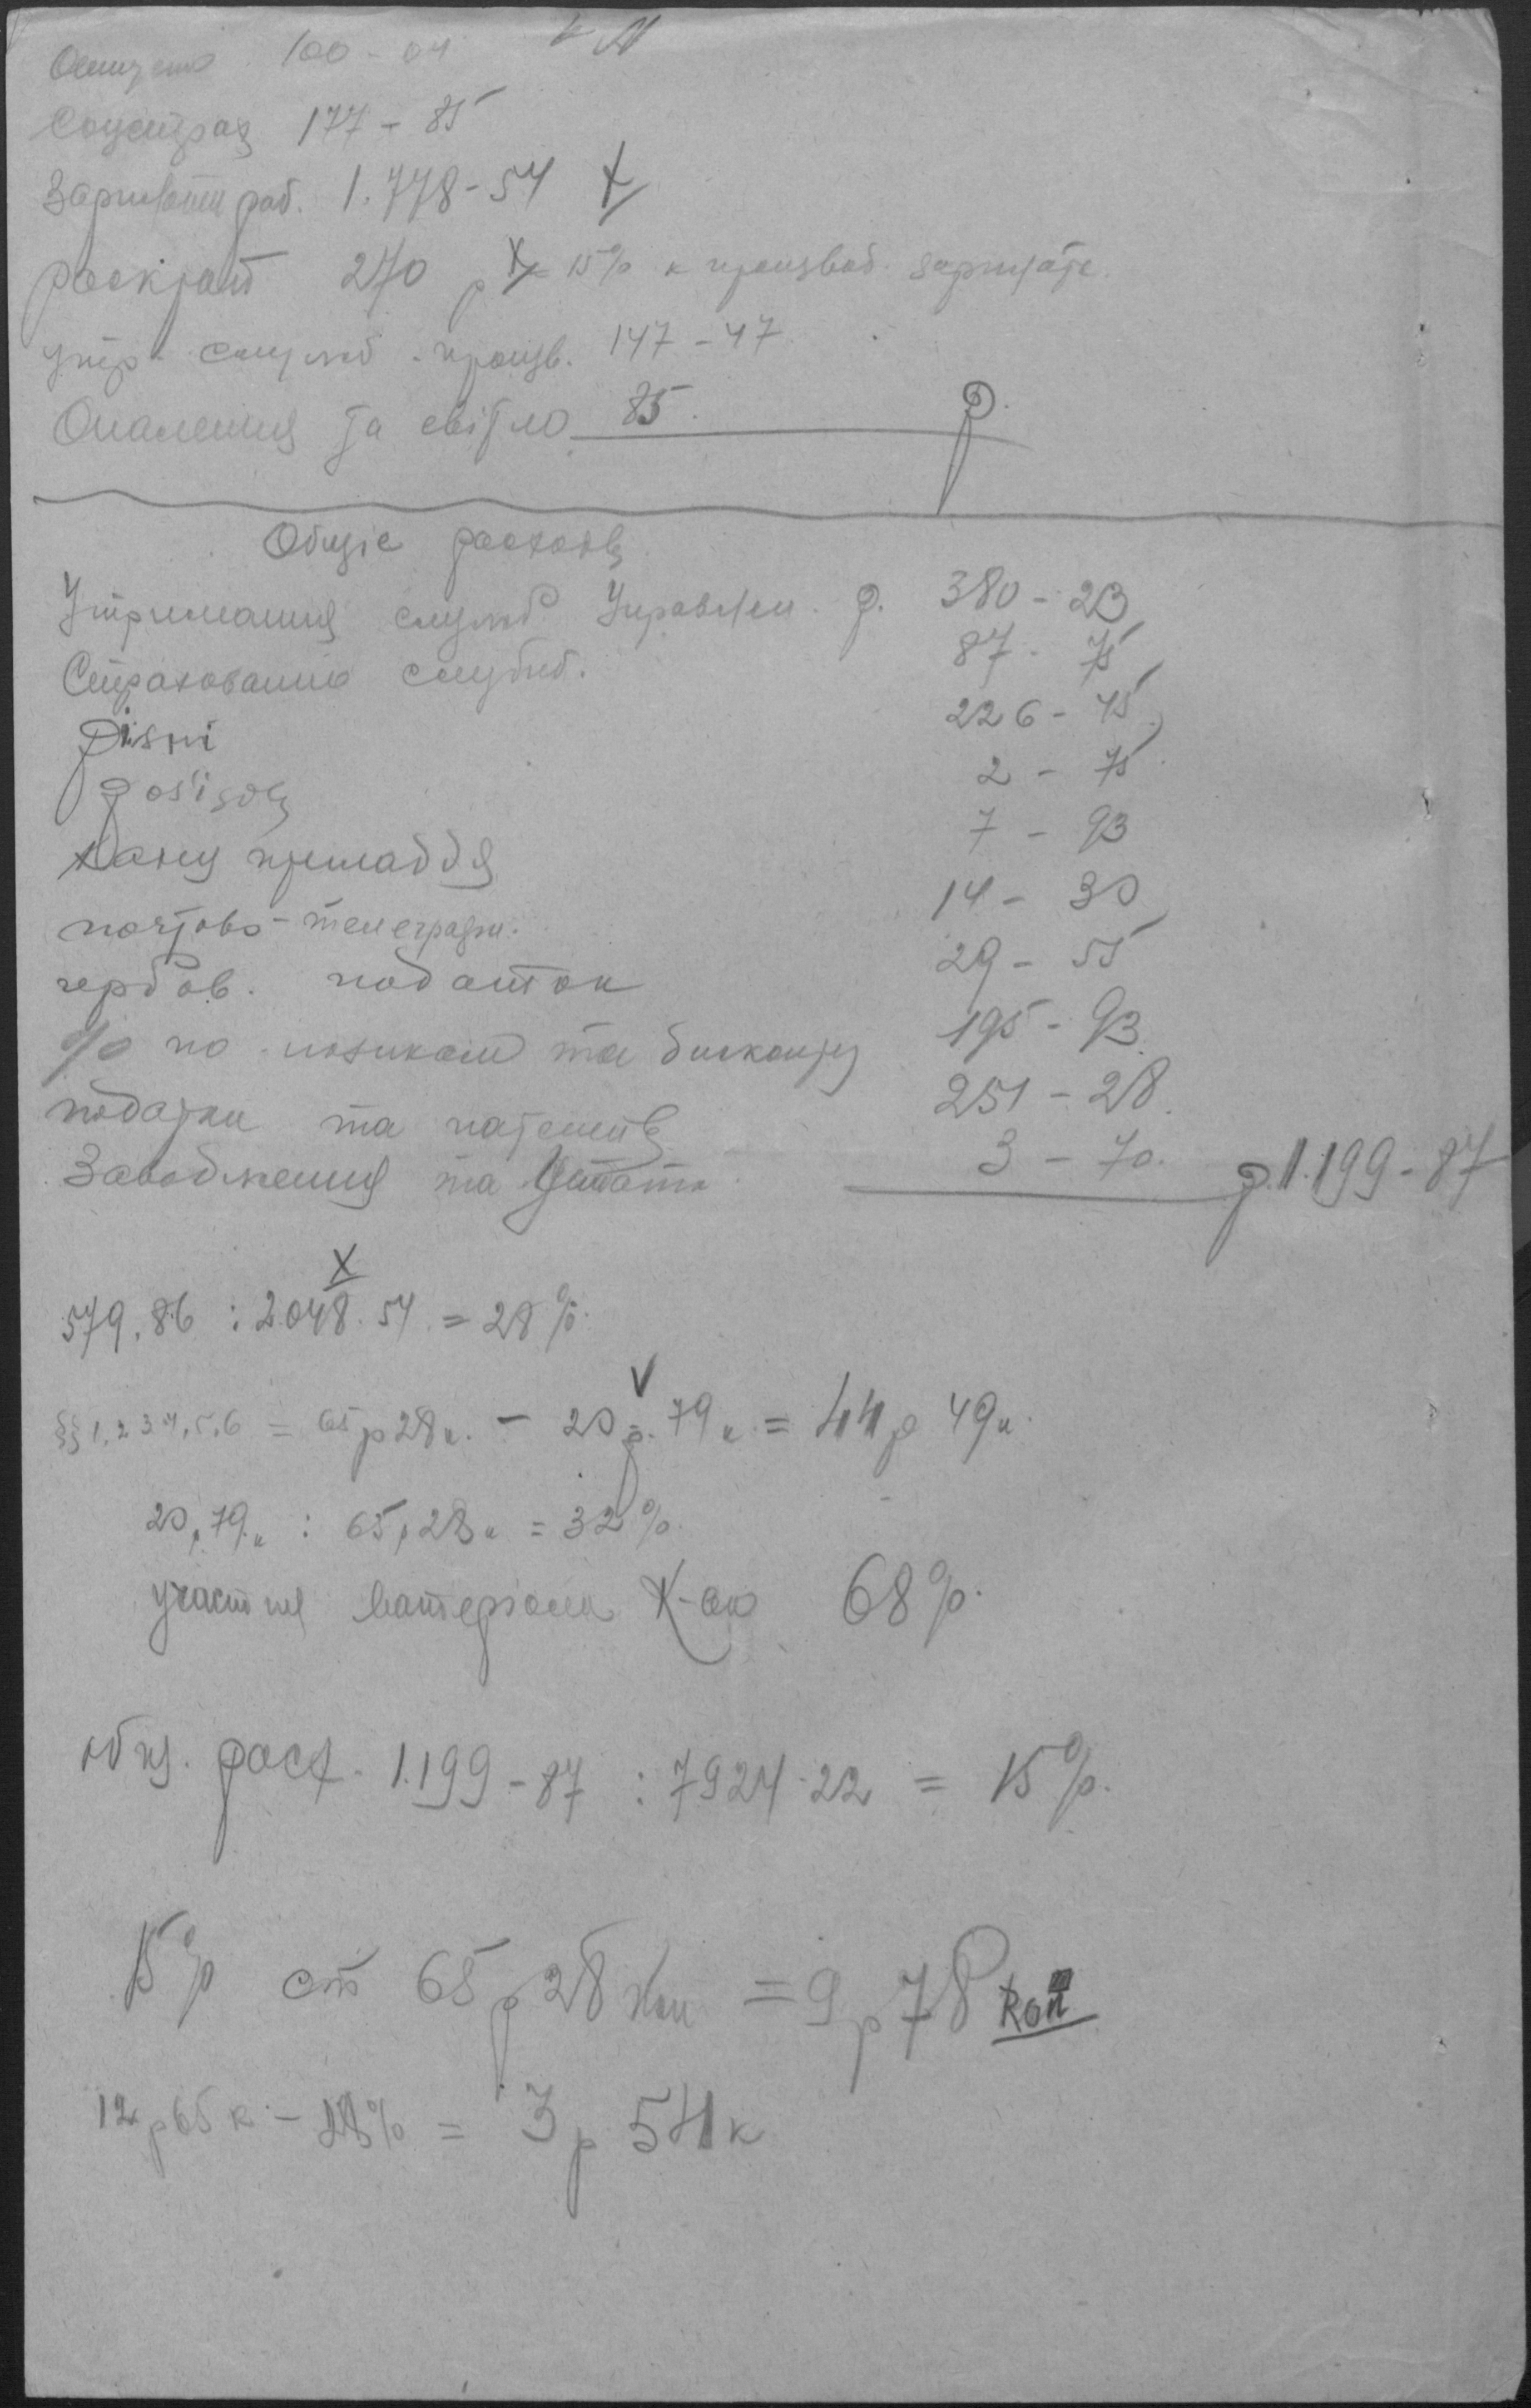 100-04
Соцстрах 177-85
Зарплата раб. 1.778-54 х
раскрат 270 р х 15% к производ. зарплате.
утр. служб. произв. 147-47
Опалення та світло 85. р.
Общіе расходы
Утримання служб Управлен. р. 380-23
Страхованию служб. 87-75
різні 226-45
роз'їзды 2-75
канц приладдя 7-93
почтово-телеграфн. 14-30
гербов. податок 29-55
% по позикам та дисконту 195-93
податки та патенты 251-28
Заводження та 3-70. р.1.199-87
х
579.86 : 2048.54 = 28%.
§§ 1,2,3,4,5,6 = 65р28к. - 20р.79к. = 44р 49к.
20р79к : 65р28к = 32%
участия матеріала 68%.
общ. расх. 1.199-87 : 7924.22 = 15%.
15% от 65р28коп = 9р78коп
12р65к - 28% = 3р 54к